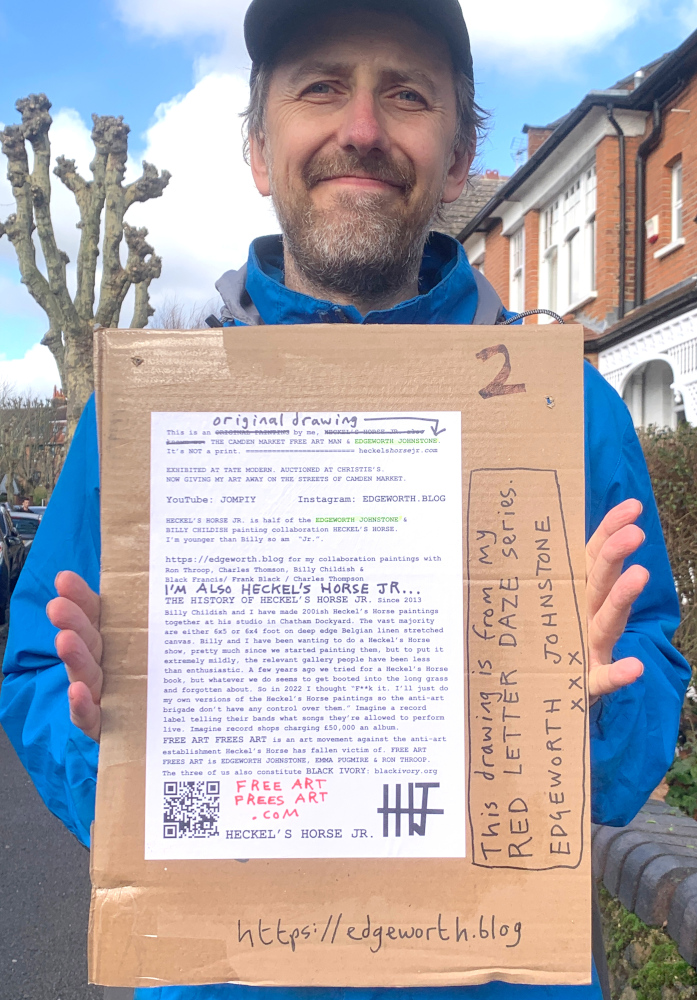 2
original drawing
This is an ORIGINAL PAINTING by me, HECKEL'S HORSE JR. also
THE CAMDEN MARKET FREE ART MAN & EDGEWORTH JOHNSTONE.
It's NOT a print. heckelshorsejr.com
EXHIBITED AT TATE MODERN. AUCTIONED AT CHRISTIE'S.
NOW GIVING MY ART AWAY ON THE STREETS OF CAMDEN MARKET.
YouTube: JOMPIY Instagram: EDGEWORTH.BLOG
HECKEL'S HORSE JR. is half of the EDGEWORTH JOHNSTONE &
BILLY CHILDISH painting collaboration HECKEL'S HORSE.
I'm younger than Billy so am "Jr.".
https://edgeworth.blog for my collaboration paintings with
Ron Throop, Charles Thomson, Billy Childish &
Black Francis/ Frank Black / Charles Thompson
I'M ALSO HECKEL'S HORSE JR...
THE HISTORY OF HECKEL'S HORSE JR. Since 2013
Billy Childish and I have made 200ish Heckel's Horse paintings
together at his studio in Chatham Dockyard. The vast majority
are either 6x5 or 6x4 foot on deep edge Belgian linen stretched
canvas. Billy and I have been wanting to do a Heckel's Horse
show, pretty much since we started painting them, but to put it
extremely mildly, the relevant gallery people have been less
than enthusiastic. A few years ago we tried for a Heckel's Horse
book, but whatever we do seems to get booted into the long grass
and forgotten about. So in 2022 I thought "F**k it. I'll just do
my own versions of the Heckel's Horse paintings so the anti-art
brigade don't have any control over them." Imagine a record
label telling their bands what songs they're allowed to perform
live. Imagine record shops charging £50,000 an album.
FREE ART FREES ART is an art movement against the anti-art
establishment Heckel's Horse has fallen victim of. FREE ART
FREES ART is EDGEWORTH JOHNSTONE, EMMA PUGMIRE & RON THROOP.
The three of us also constitute BLACK IVORY: blackivory.org
FREE ART
FREES ART
.COM
HECKEL'S HORSE JR.
This drawing is from my
RED LETTER DAZE series.
EDGEWORTH JOHNSTONE
x x x
https://edgeworth.blog